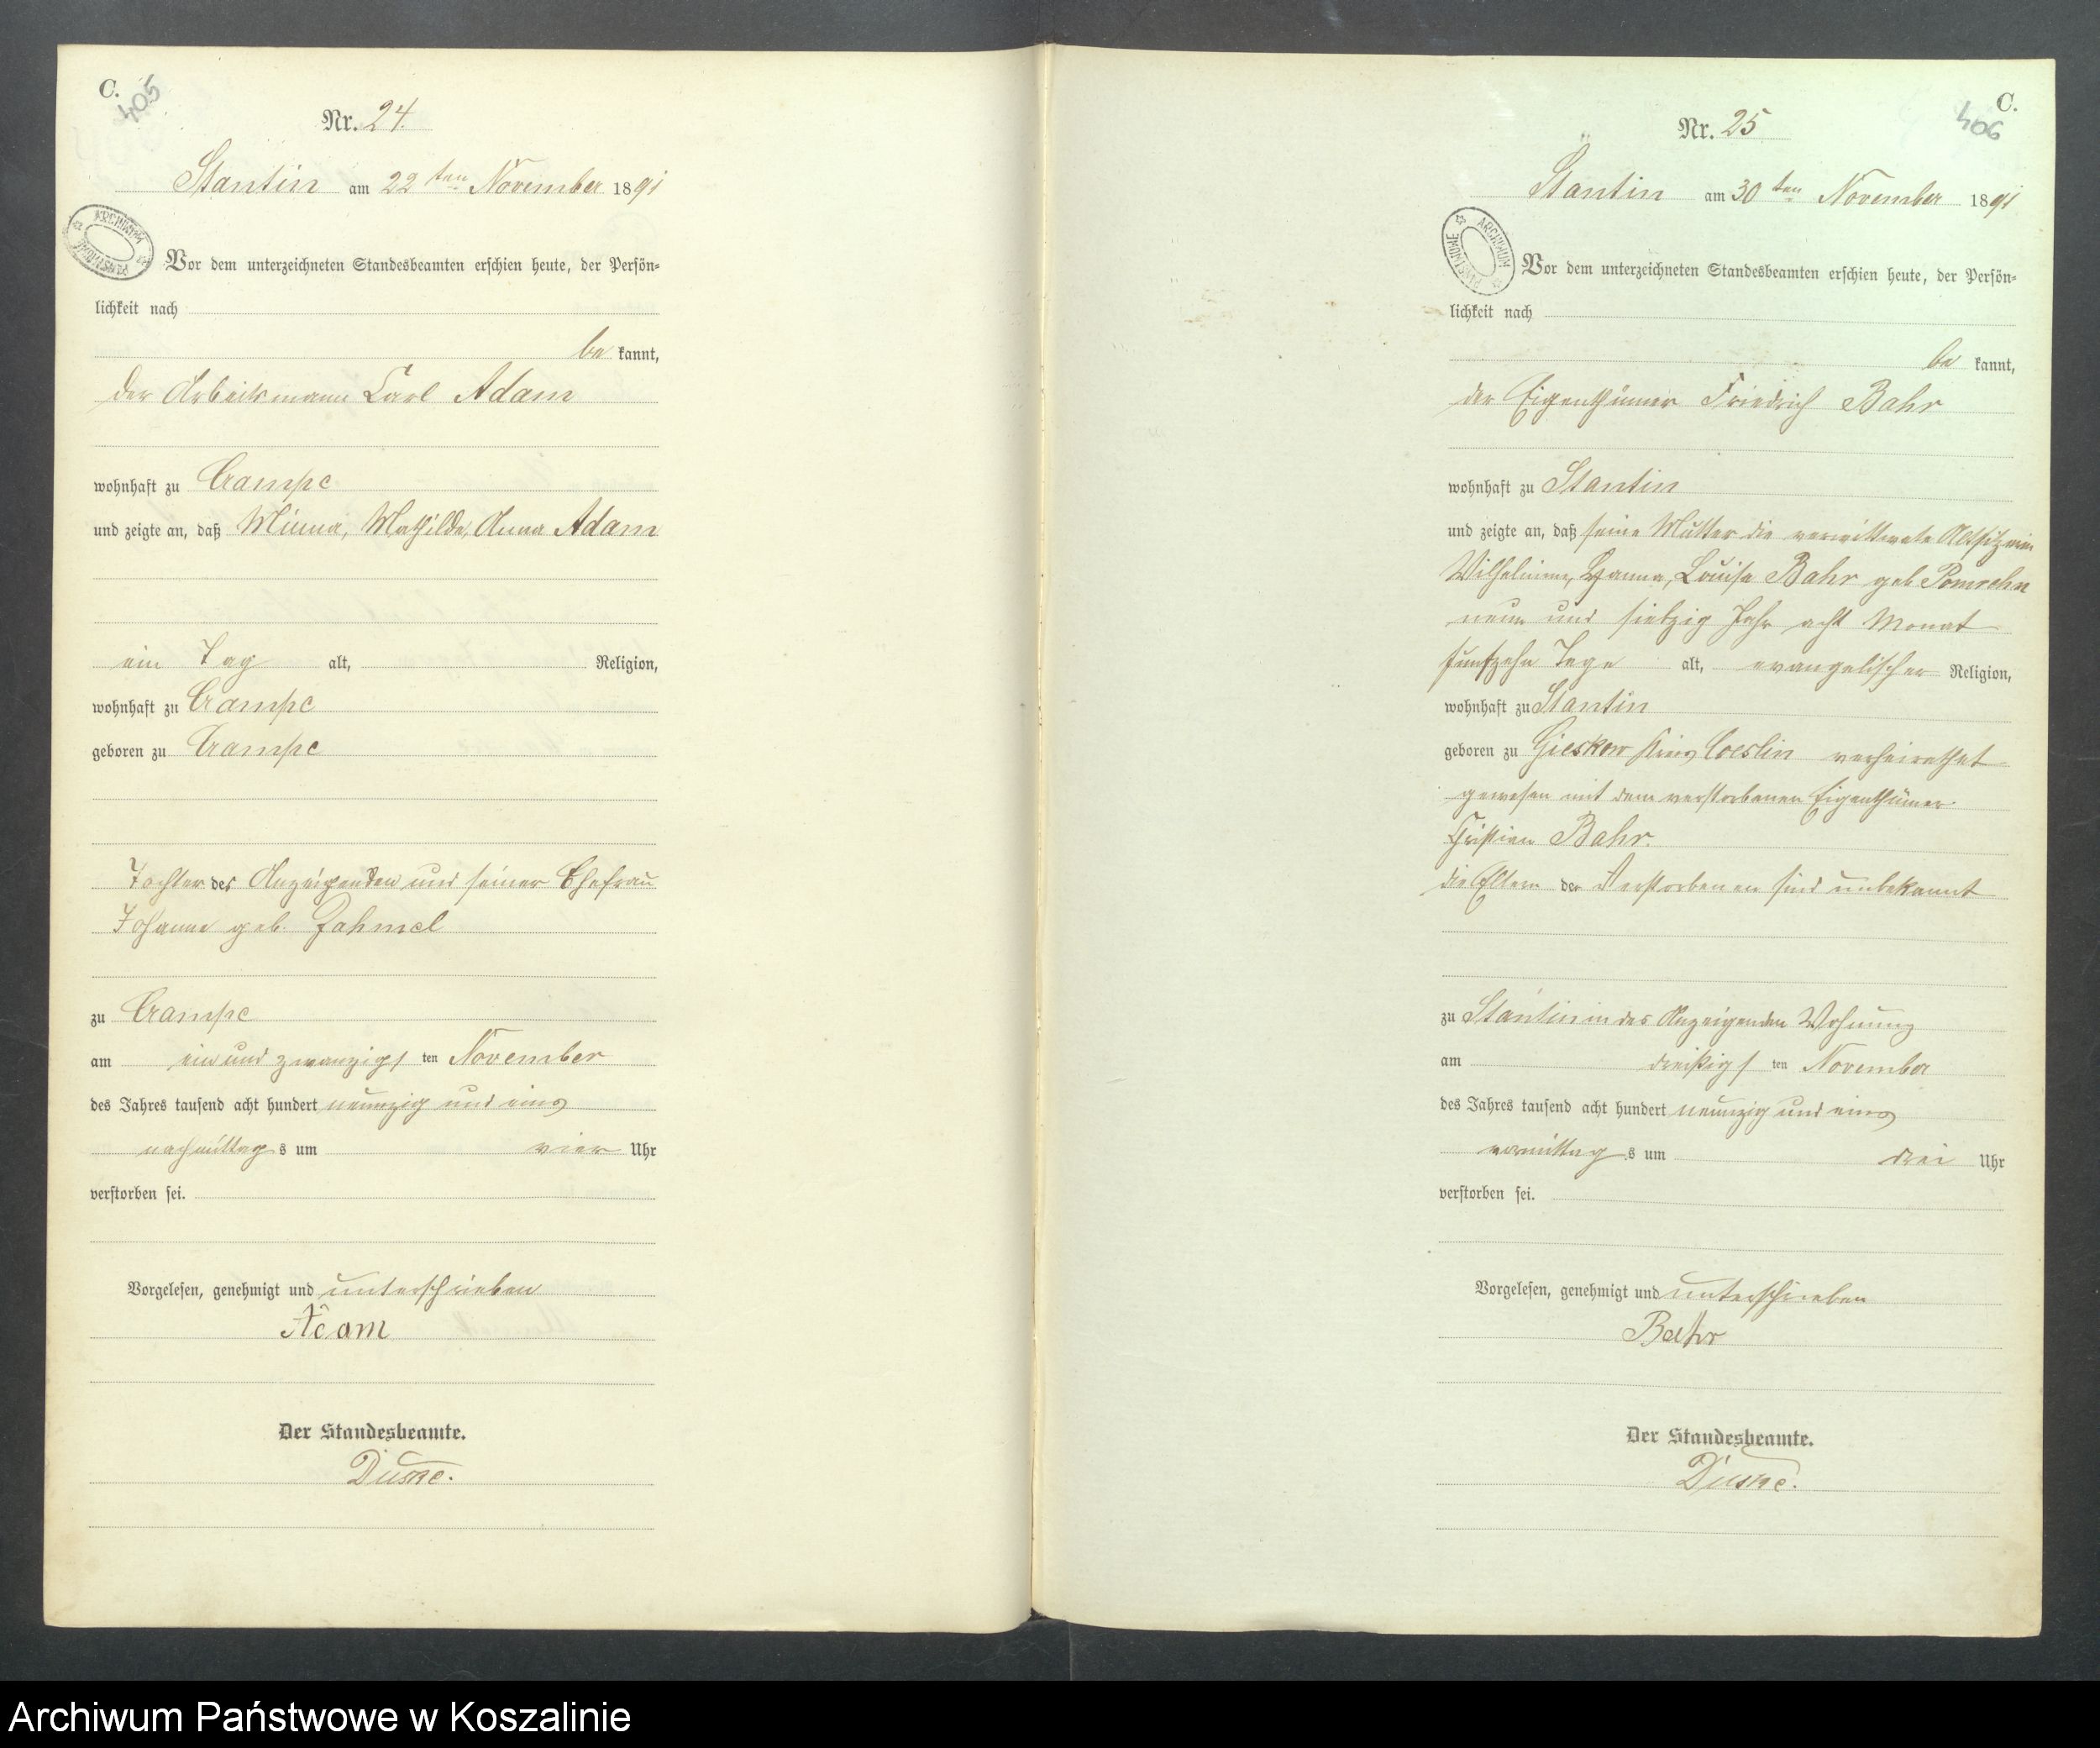 C.
405
Nr. 24.
Stantin am 22ten November 1891
ARCHIWUM PAŃSTWOWE
Vor dem unterzeichneten Standesbeamten erschien heute, der Persön-
lichkeit nach
be kannt,
der Arbeitsmann Carl Adam
wohnhaft zu Crampe
und zeigte an, daß Minna, Mathilde, Anna Adam
ein Tag alt, Religion,
wohnhaft zu Crampe
geboren zu Crampe
Tochter des Anzeigenden und seiner Ehefrau
Johanne geb. Zahmel
zu Crampe
am ein und zwanzigsten November
des Jahres tausend acht hundert neunzig und eins
nachmittags um vier Uhr
verstorben sei.
Vorgelesen, genehmigt und unterschrieben
Adam
Der Standesbeamte.
C.
406
Nr. 25
Stantin am 30ten November 1891
ARCHIWUM PAŃSTWOWE
Vor dem unterzeichneten Standesbeamten erschien heute, der Persön-
lichkeit nach
be kannt,
der Eigenthümer Friedrich Bahr
wohnhaft zu Stantin
und zeigte an, daß seine Mutter die verwittwete Altsitzerin
Wilhelmine, Hanna, Louise Bahr geb Pomrehn
neun und siebzig Jahr acht Monat
fünfzehn Tage alt, evangelischer Religion,
wohnhaft zu Stantin
geboren zu Gieskow Kreis Coeslin verheirathet
gewesen mit dem verstorbenen Eigenthümer
Christian Bahr.
die Eltern der Verstorbenen sind unbekannt
zu Stantin in des Anzeigenden Wohnung
am dreißigsten November
des Jahres tausend acht hundert neunzig und eins
vormittags um drei Uhr
verstorben sei.
Vorgelesen, genehmigt und unterschrieben
Bahr
Der Standesbeamte.
Archiwum Państwowe w Koszalinie